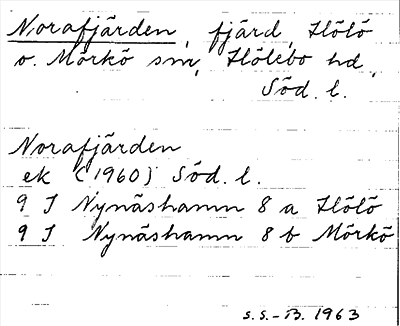 Norafjärden, fjärd, Hölö
o. Mörkö snr, Hölebo hd,
Söd. l.
Norafjärden
ek (1960) Söd. l.
9 I Nynäshamn 8 a Hölö
9 I Nynäshamn 8 b Mörkö
S.S.-B. 1963